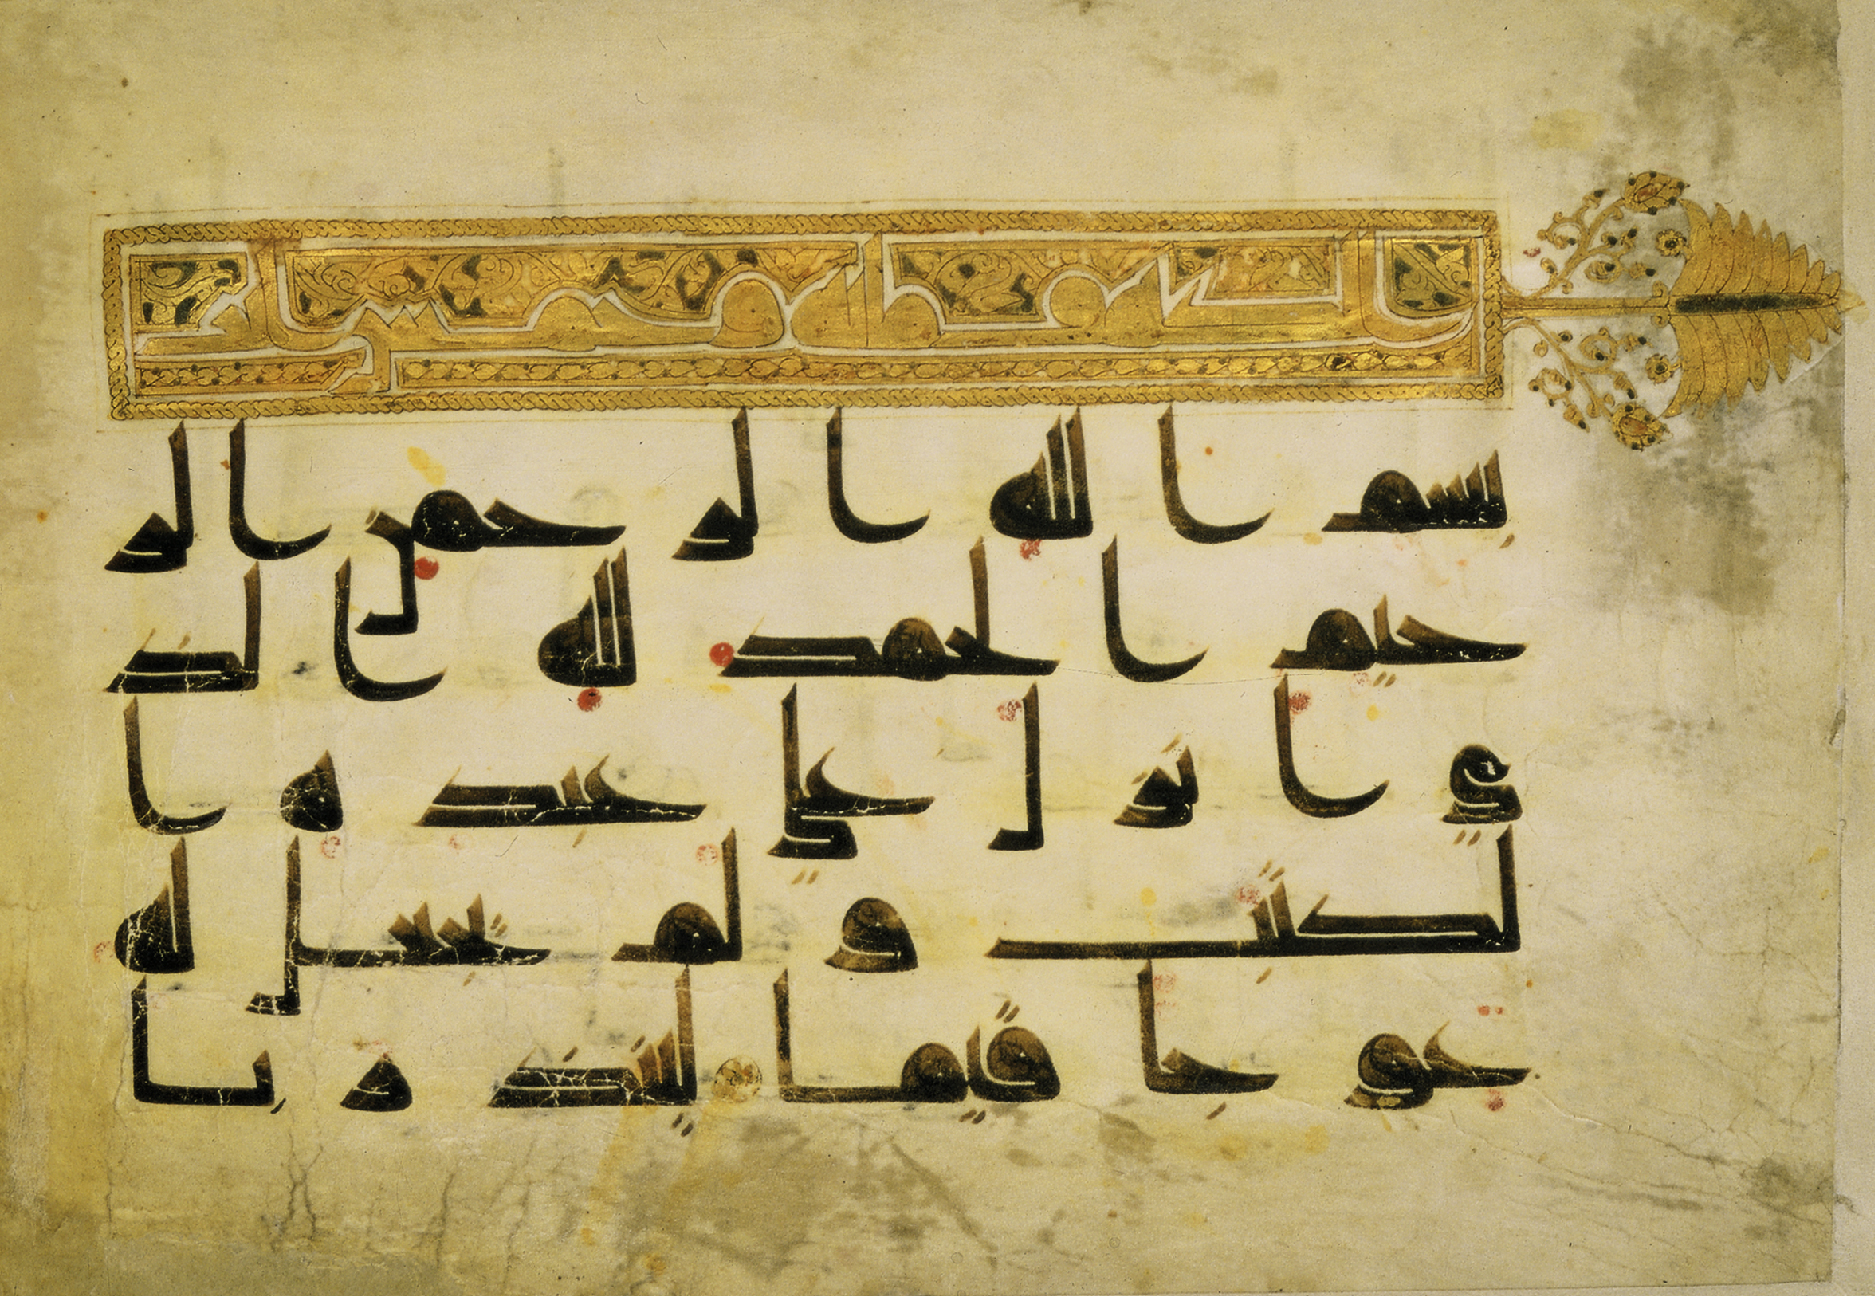 بسم الله الر حمن الر
حيم الحمد لله الذ
ي انزل على عبده ا
لكتب ولم يجعل له
عوجا قيما لينذر با